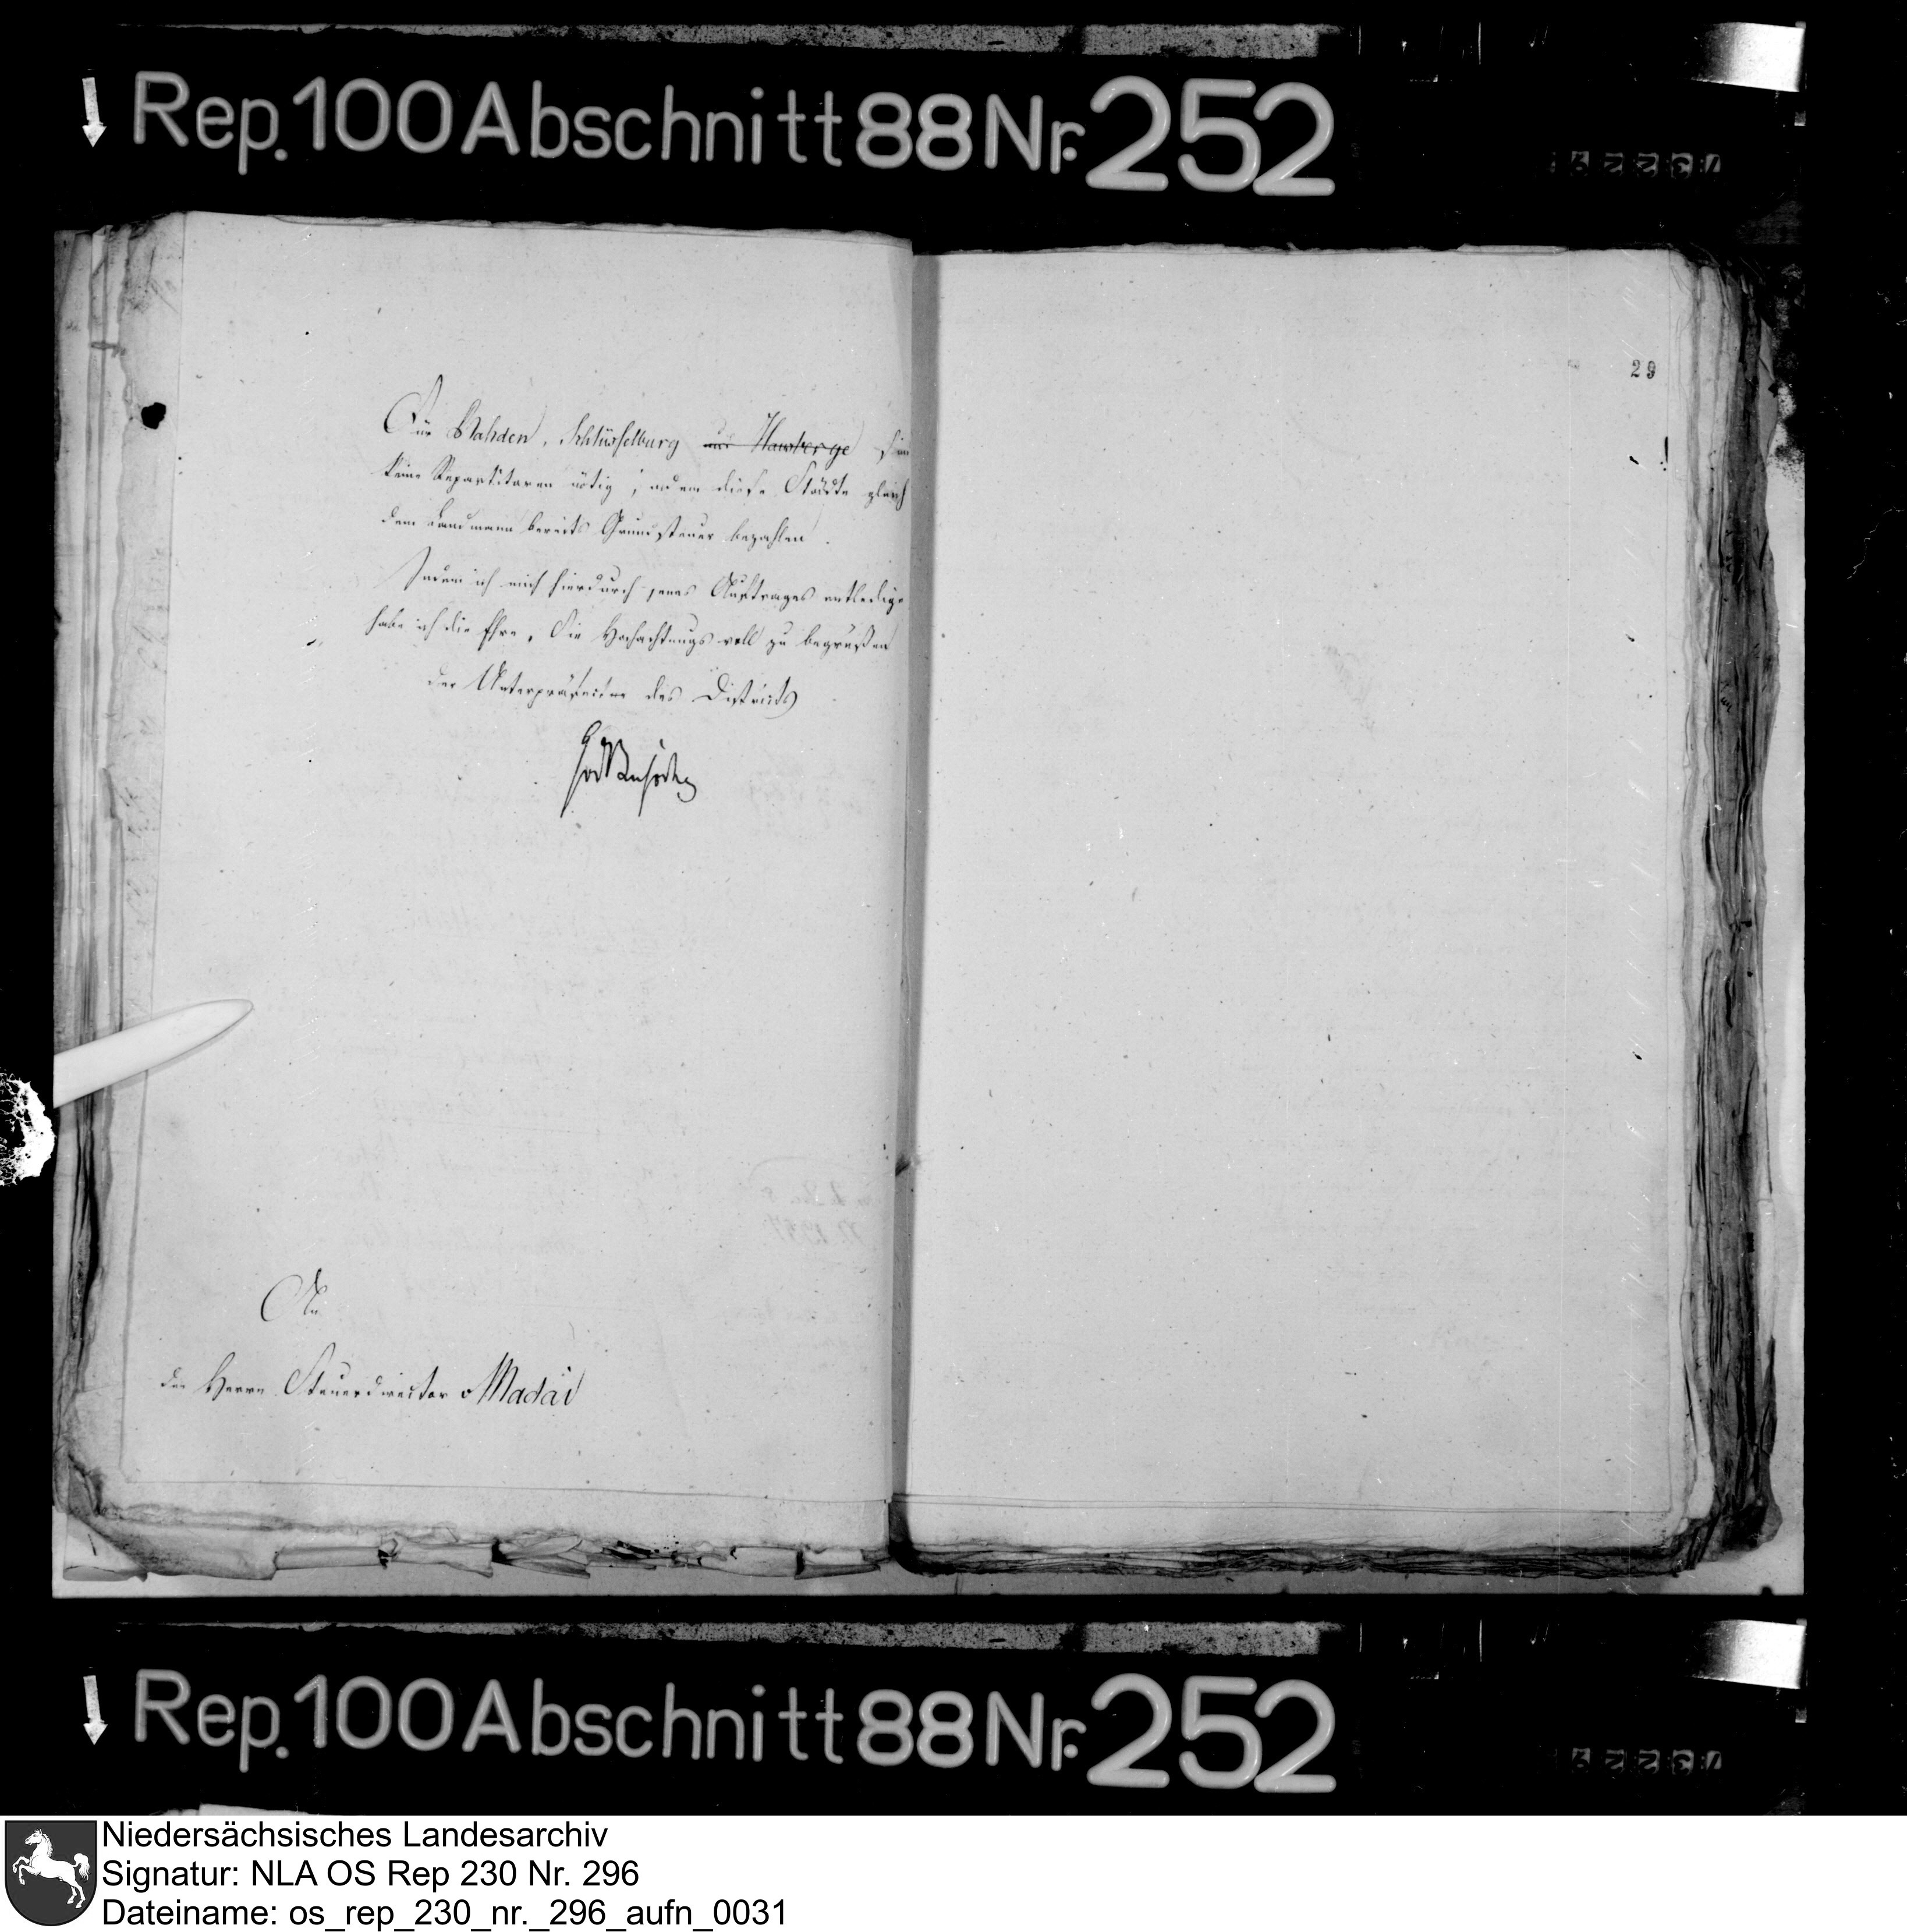 Rep. 100 Abschnitt 88 Nr. 252
Für Rahden, Schlüsselburg und Hausberge sind
keine Repartitoren nötig, indem diese Städte gleich
dem Landmann bereits Grundsteuer bezahlen.
Indem ich mich hierdurch jenes Auftrages entledige
habe ich die Ehre, Sie Hochachtungsvoll zu begrüßen
Der Unterpräfect des Districts
An
den Herrn Steuerdirector v Madai
29
Rep. 100 Abschnitt 88 Nr. 252
Niedersächsisches Landesarchiv
Signatur: NLA OS Rep 230 Nr. 296
Dateiname: os_rep_230_nr._296_aufn_0031